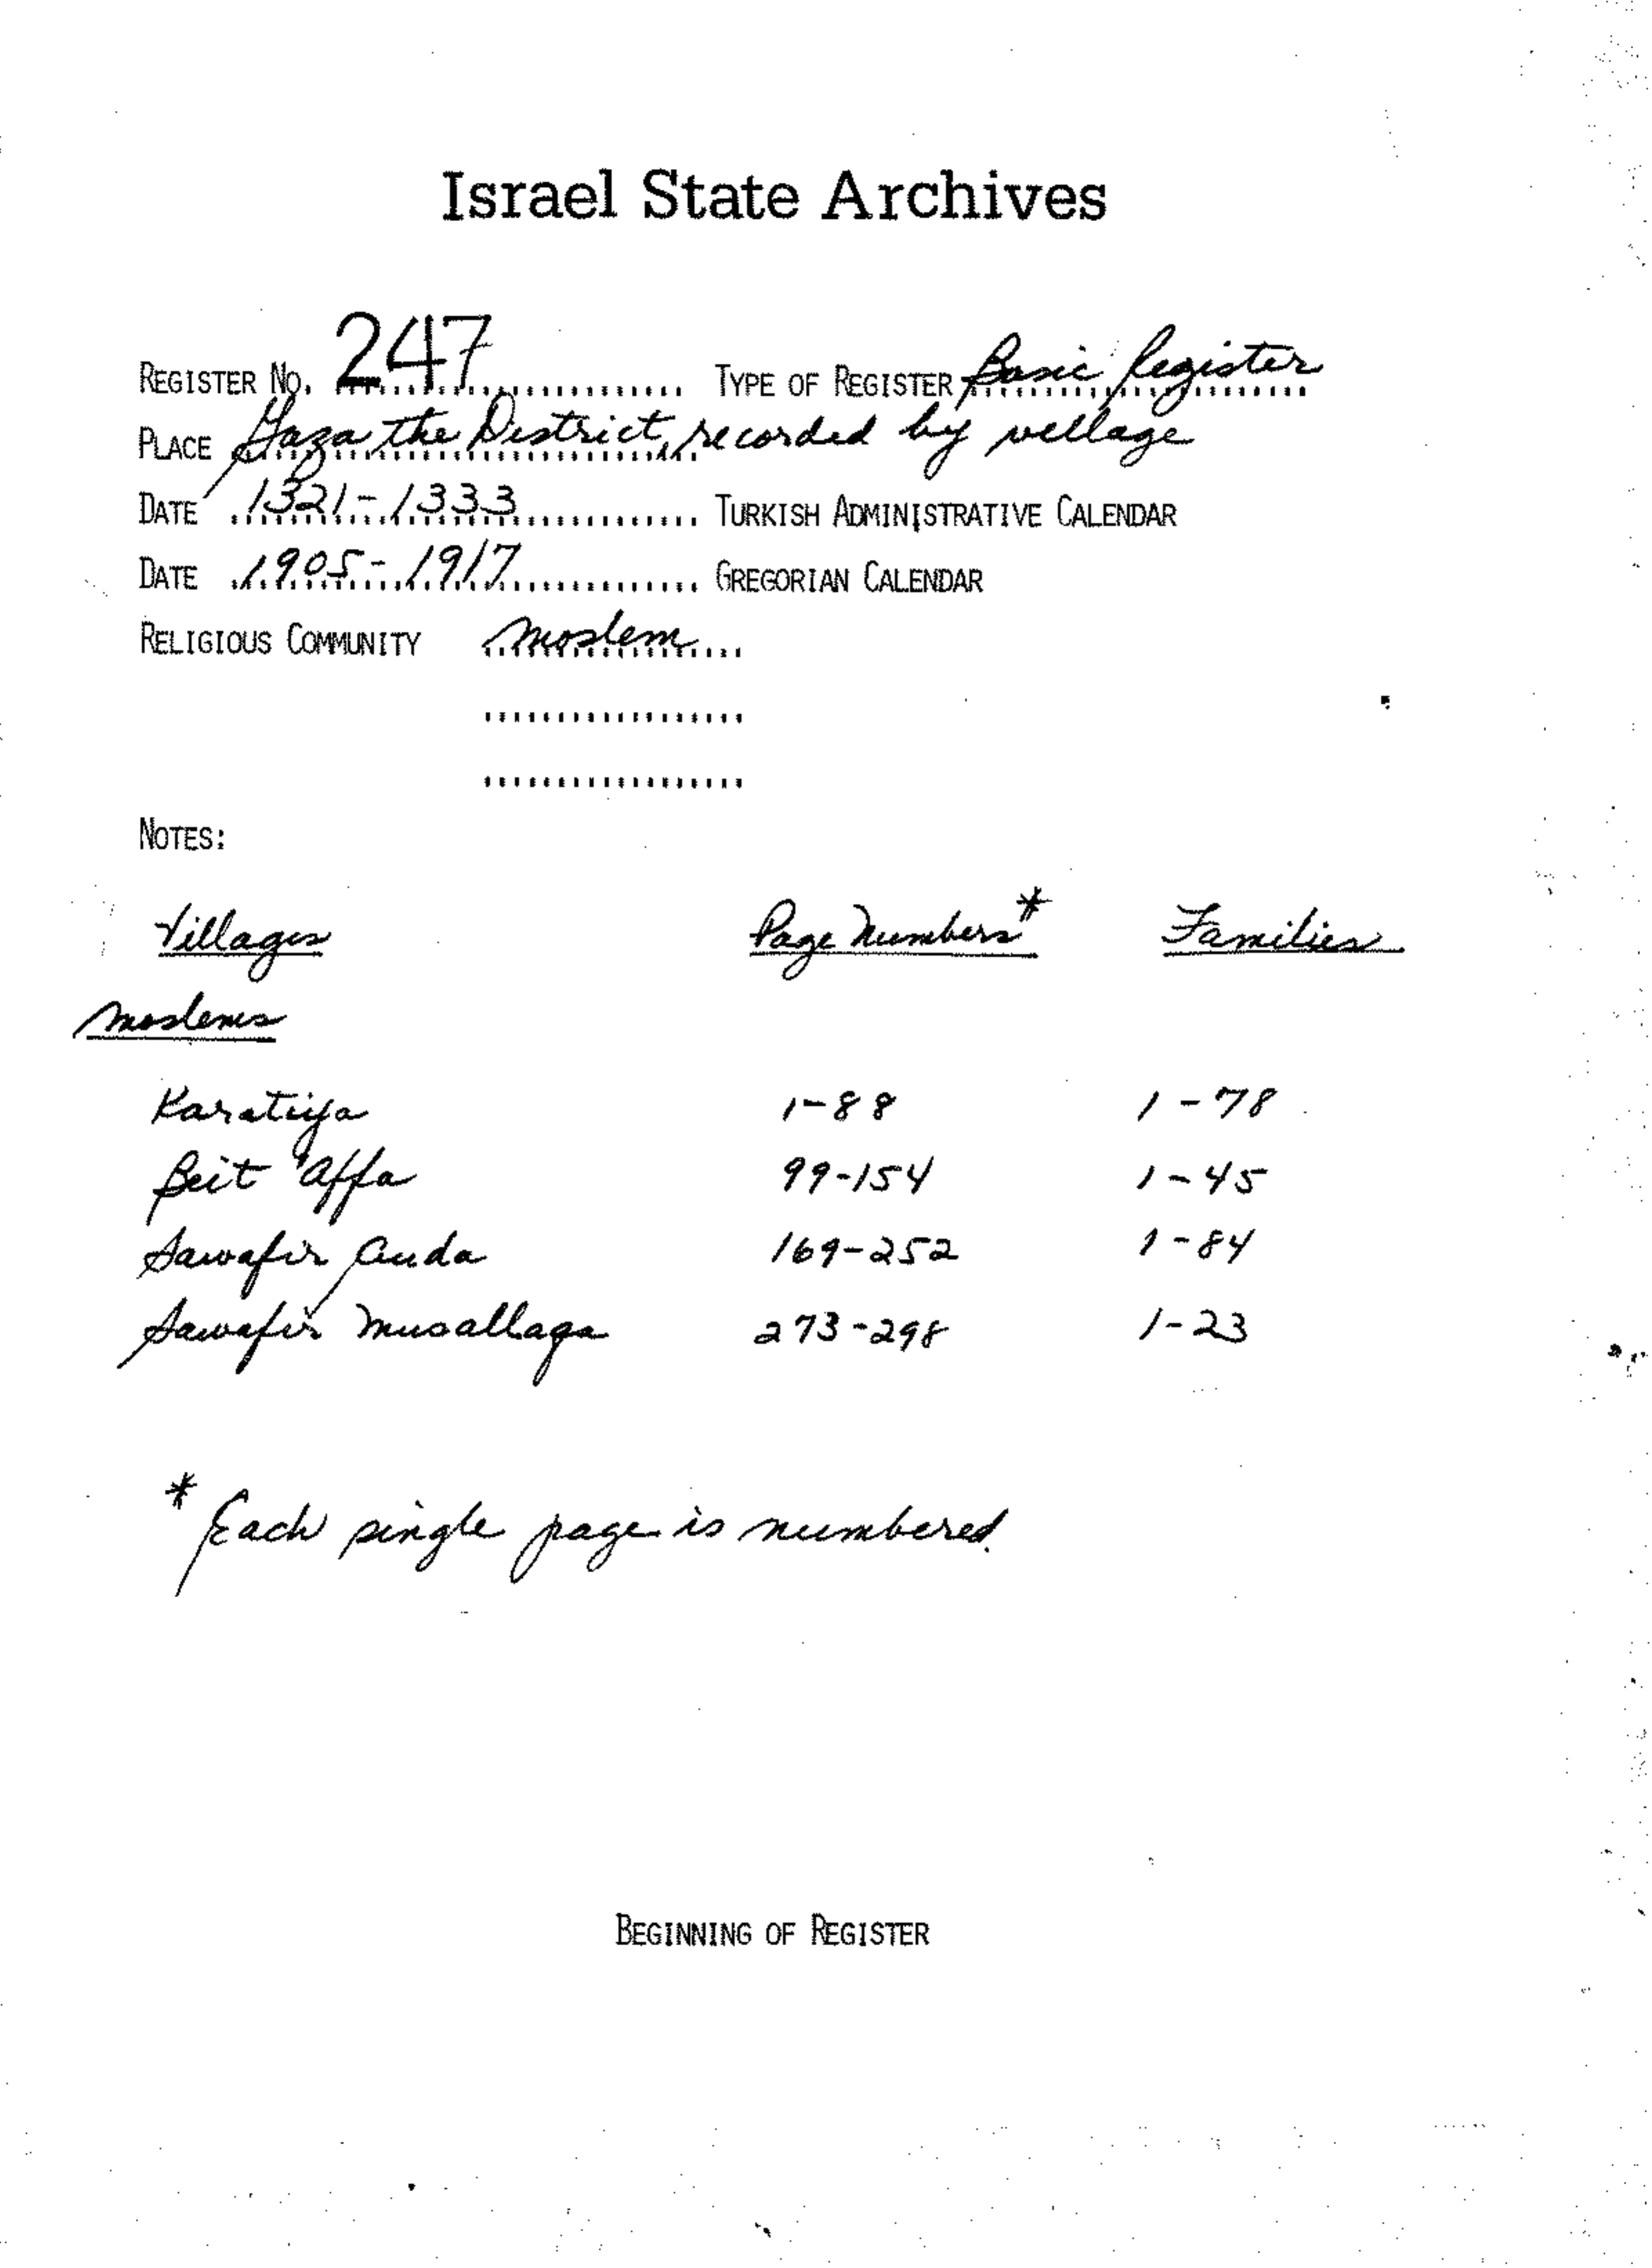 Israel State Archives
REGISTER NO. 247 TYPE OF REGISTER Basic Register
PLACE Gaza the District, recorded by village
DATE 1321-1333 TURKISH ADMINISTRATIVE CALENDAR
DATE 1905-1917 GREGORIAN CALENDAR
RELIGIOUS COMMUNITY Moslem
NOTES:
Villages Page Numbers* Families
Moslems
Karatiya 1-88 1-78
Beit 'Affa 99-154 1-45
Sawafir Auda 169-252 1-84
Sawafir Musallaga 273-298 1-23
* Each single page is numbered.
BEGINNING OF REGISTER